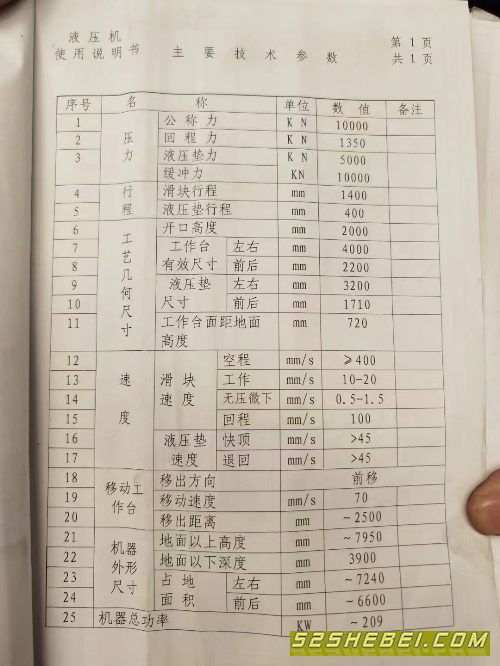 液压机
使用说明书 主要技术参数 第1页
共1页
序号 名称 单位 数值 备注
1 压力 公称力 KN 10000
2 回程力 KN 1350
3 液压垫力 KN 5000
缓冲力 KN 10000
4 行程 滑块行程 mm 1400
5 液压垫行程 mm 400
6 工艺几何尺寸 开口高度 mm 2000
7 工作台有效尺寸 左右 mm 4000
8 前后 mm 2200
9 液压垫尺寸 左右 mm 3200
10 前后 mm 1710
11 工作台面距地面高度 mm 720
12 速度 滑块速度 空程 mm/s ≥400
13 工作 mm/s 10-20
14 无压微下 mm/s 0.5-1.5
15 回程 mm/s 100
16 液压垫速度 快顶 mm/s >45
17 退回 mm/s >45
18 移动工作台 移出方向 前移
19 移动速度 mm/s 70
20 移出距离 mm ~2500
21 机器外形尺寸 地面以上高度 mm ~7950
22 地面以下深度 mm 3900
23 占地面积 左右 mm ~7240
24 前后 mm ~6600
25 机器总功率 KW ~209
52SHEBEI.COM